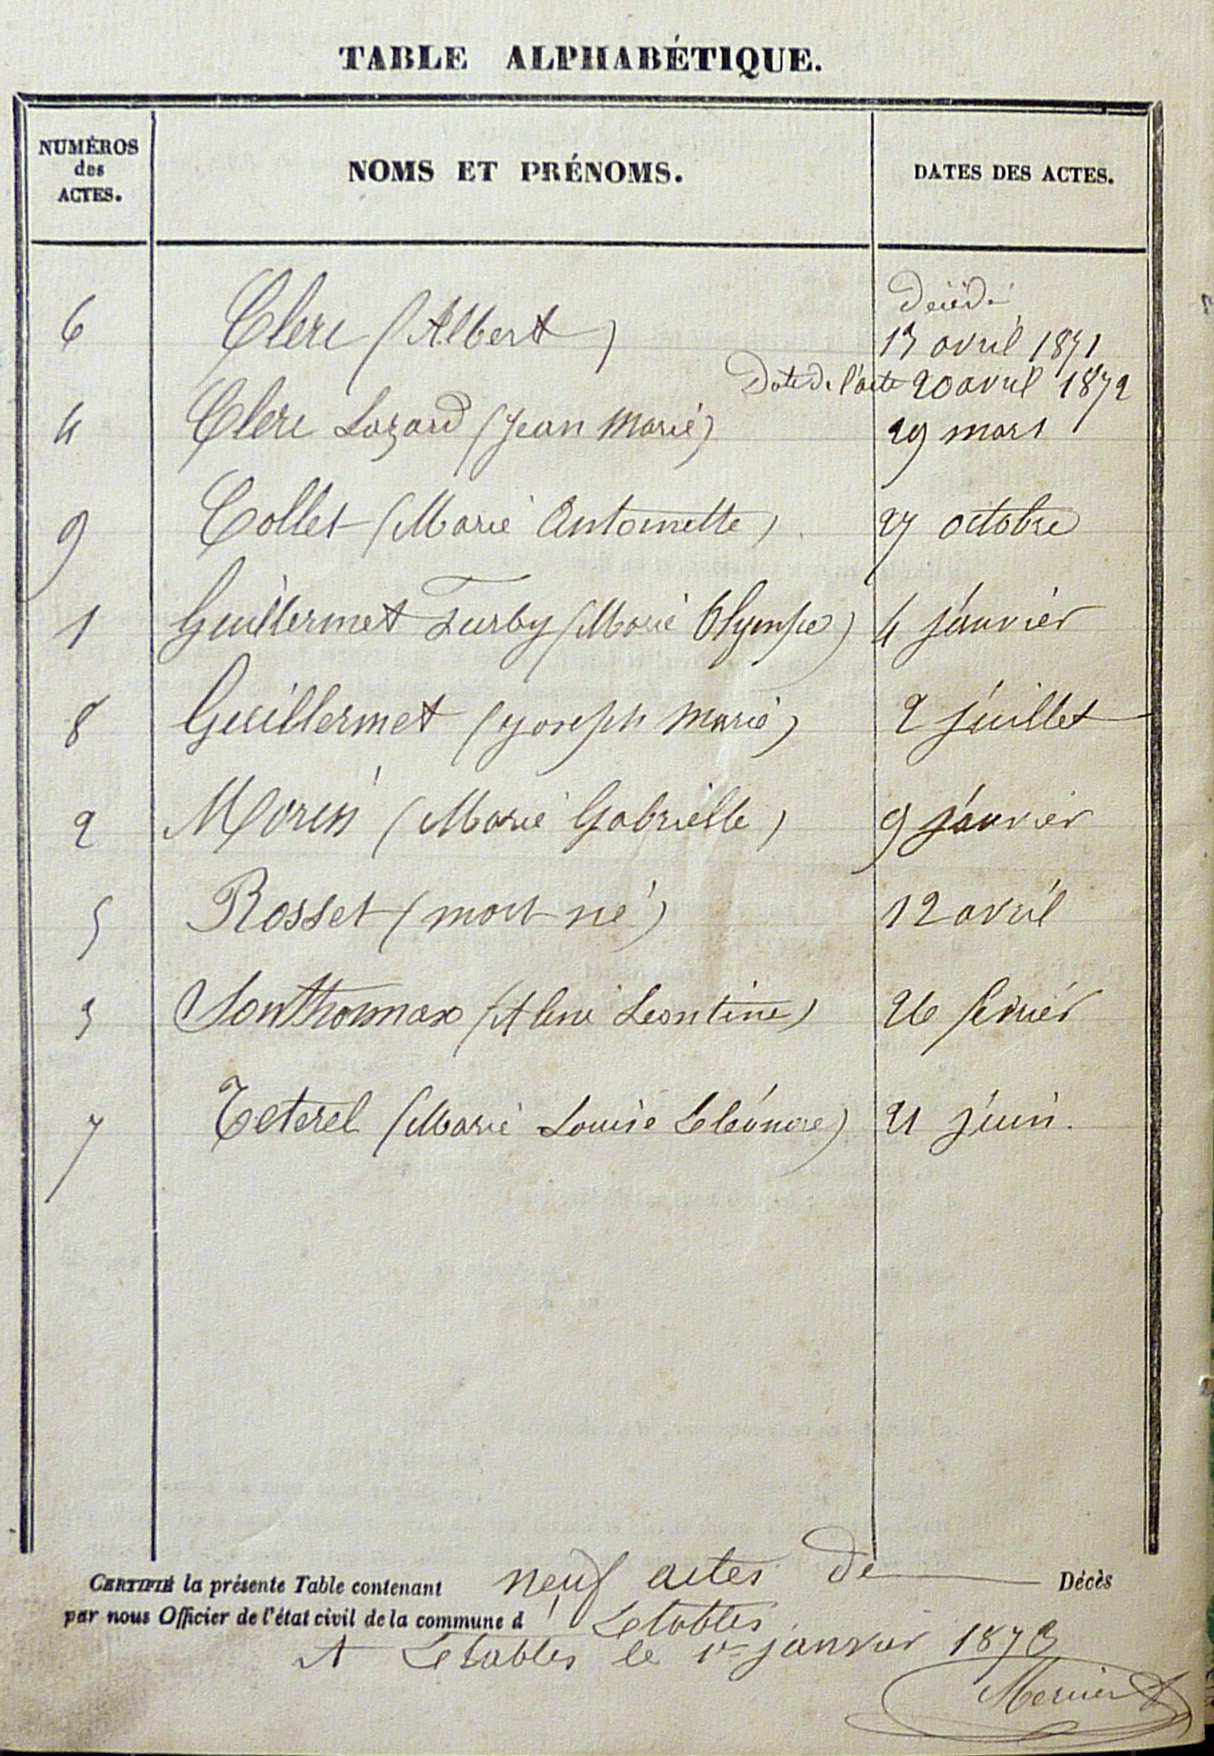 TABLE ALPHABÉTIQUE.
NUMÉROS
des
ACTES.
NOMS ET PRÉNOMS.
DATES DES ACTES.
décédé
6 Clerc (Albert) 13 avril 1871
Date de l'acte 20 avril 1872
4 Clerc Lazard (Jean Marie) 29 mars
9 Collet (Marie Antoinette) 27 octobre
1 Guillermet Turby (Marie Olympe) 4 janvier
8 Guillermet (Joseph Marie) 2 juillet
2 Morin (Marie Gabrielle) 9 janvier
5 Rosset (mort né) 12 avril
3 Sonthonnax (Aline Leontine) 26 fevrier
7 Teterel (Marie Louise Eléonore) 21 juin.
CERTIFIÉ la présente Table contenant neuf actes de Décès
par nous Officier de l'état civil de la commune d Etables
A Etables le 1er janvier 1873
Mercier